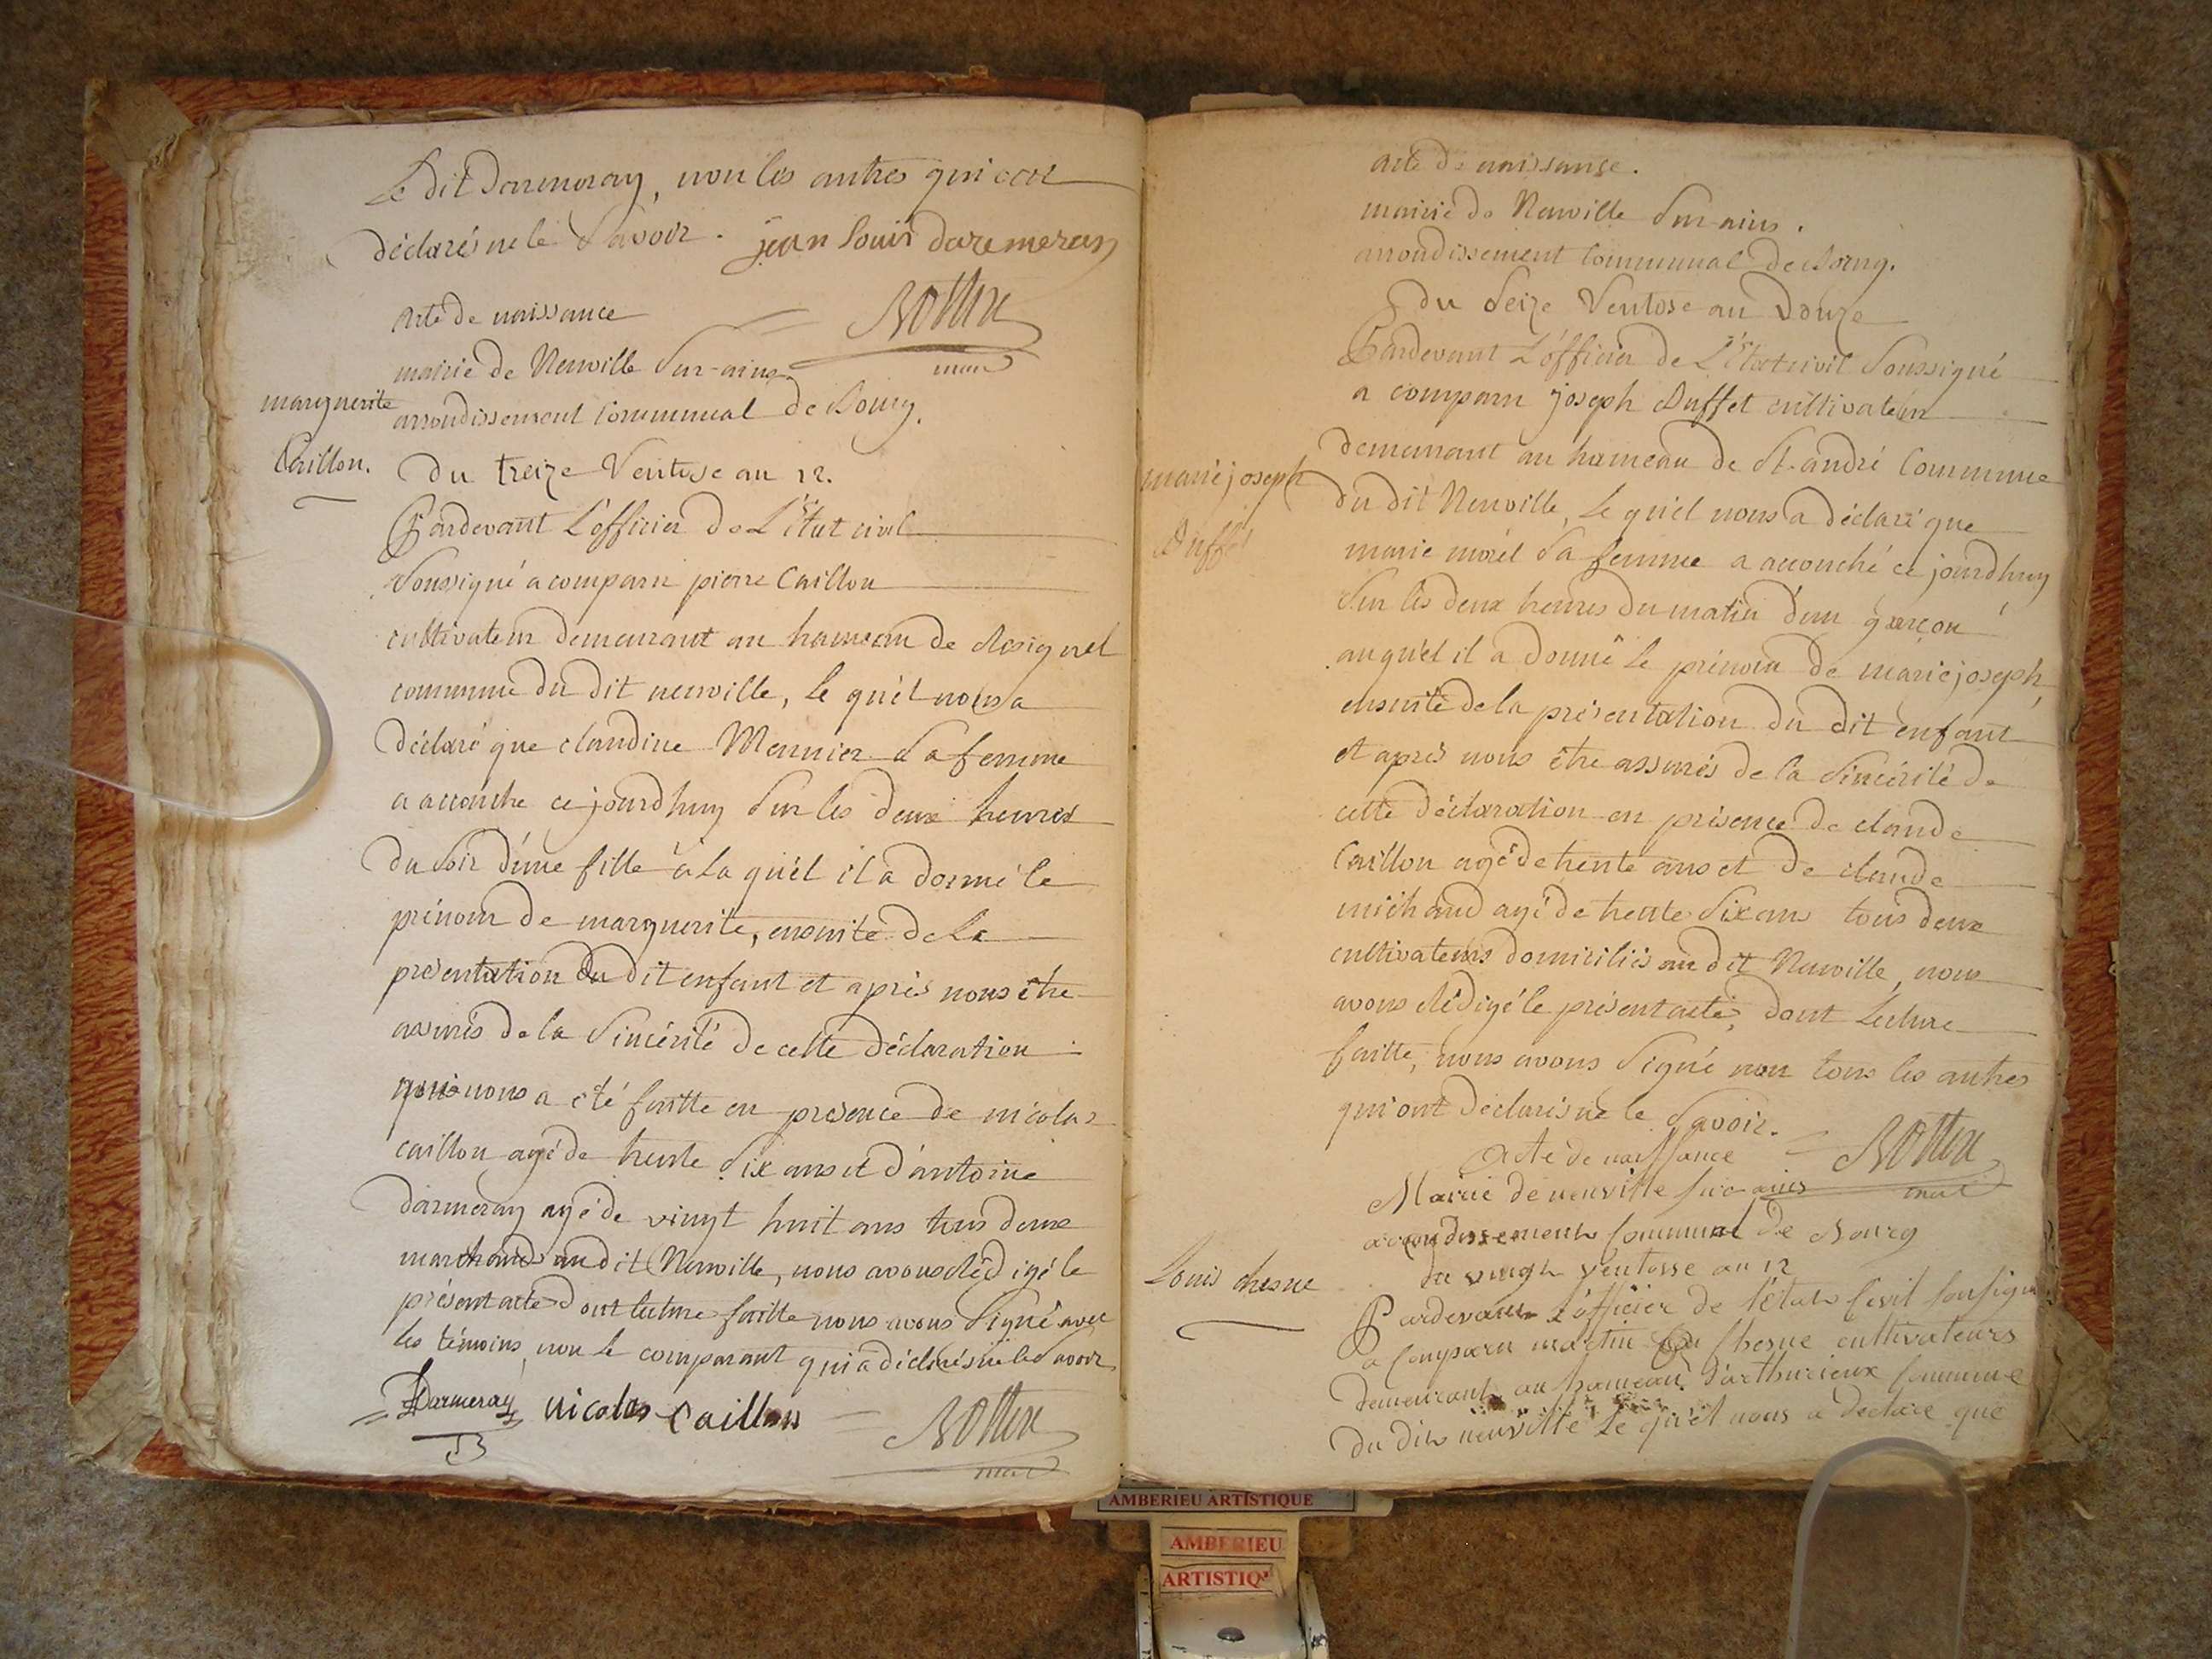 Le dit Darmeray, non les autres qui ont
déclarés ne le Savoir. jean louis daremeray
Rottier
maire
acte de naissance
mairie de Neuville Sur-ains
arrondissement Communal de Bourg.
marguerite
Caillon.
Du treize Ventose an 12.
Pardevant L'officier de L'état civil
Soussigné a comparu pierre Caillon
cultivateur demeurant au hameau de Rosignol
commune du dit neuville, le quél nous a
Déclaré que claudine Meunier Sa femme
a accouché ce jourdhuy Sur les deux heures
du Soir d'une fille à la quél il a donné le
prénom de marguerite, ensuite de la
présentation du dit enfant et après nous être
assurés de la Sincérité de cette déclaration
qui nous a été faitte en présence de nicolas
caillon agé de trente Six ans et d'antoine
Darmeray agé de vingt huit ans tous deux
marchands au dit Neuville, nous avons rédigé le
présent acte dont lecture faitte nous avons Signé avec
les témoins, non le comparant qui a déclarés ne le Savoir
Darmeray nicolas Caillon
maire
acte de naissance.
mairie de Neuville Sur ains.
arrondissement Communal de Bourg.
Du Seize Ventose an Douze
Pardevant L'officier de L'état civil Soussigné
a comparu joseph Buffet cultivateur
demeurant au hameau de St. andré Commune
marie joseph
Buffet
du dit Neuville, Le quél nous a déclaré que
marie morél Sa femme a accouché ce jourdhuy
Sur les deux heures du matin d'un garçon
au quél il a donné le prénom de marie joseph,
ensuite de la présentation du dit enfant
et après nous être assurés de la Sincérité de
cette déclaration en présence de claude
Caillon agé de trente ans et de claude
michaud agé de trente Six ans tous deux
cultivateurs domiciliés au dit Neuville, nous
avons rédigé le présent acte, dont Lecture
faitte, nous avons Signé non tous les autres
qui ont déclarés ne le Savoir.
maire
Acte de naissance
Mairie de neuville sur ains
arrondissement Communal de Bourg
Louis chesne
du vingt ventosse an 12
Pardevant L'officier de l'état Civil soussigné
a comparu martin Chesne cultivateurs
demeurant au hameau d'arthurieux commune
du dit neuville Le quél nous a declaré que
AMBERIEU ARTISTIQUE
AMBERIEU
ARTISTIQ